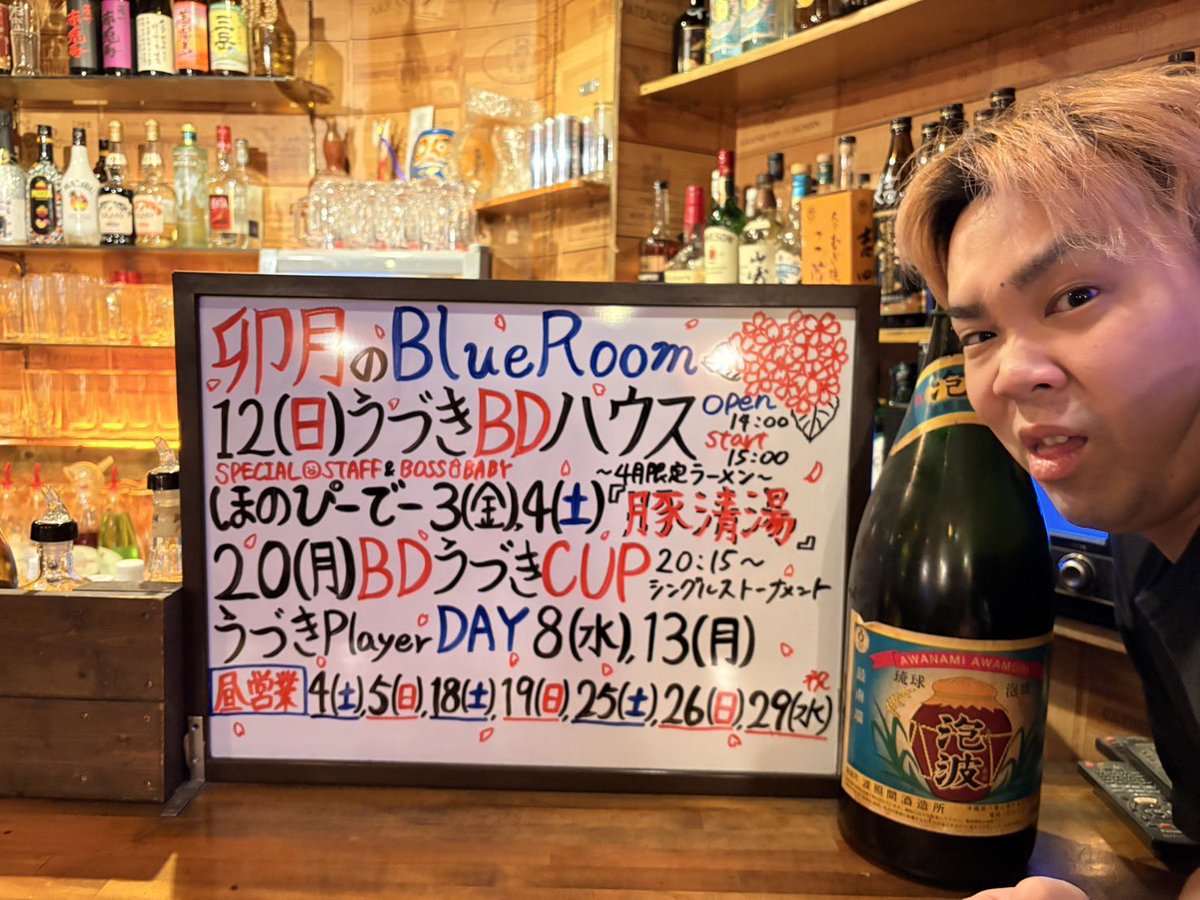 卯月のBlueRoom
12(日)うづきBDハウス
open 14:00
start 15:00
SPECIAL STAFF & BOSS BABY
～4月限定ラーメン～
ほのぴーでー3(金),4(土)『豚清湯』
20(月)BDうづきCUP 20:15～
シングルストーナメント
うづきPlayer DAY 8(水),13(月)
昼営業 4(土),5(日),18(土),19(日),25(土),26(日),29(水)
祝
三岳
AWANAMI AWAMORI
琉球泡盛
最南端
泡波
波照間酒造所
泡